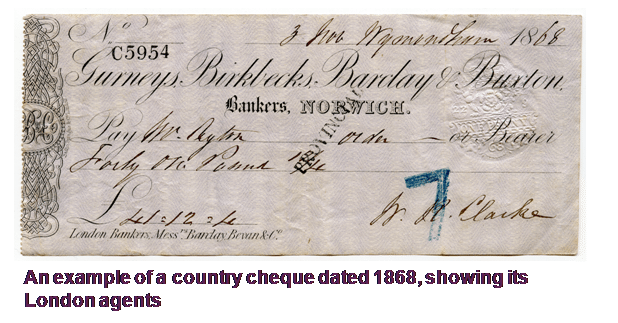 No
C5954
3 Nov Wymondham 1868
Gurneys, Birkbecks, Barclay & Buxton,
Bankers, NORWICH.
PROVINCIAL
Pay Mr. order or Bearer
Forty one Pounds 12/4
£ 41=12=4
7
W. R. Clarke
London Bankers, Messrs. Barclay, Bevan & Co.
An example of a country cheque dated 1868, showing its
London agents